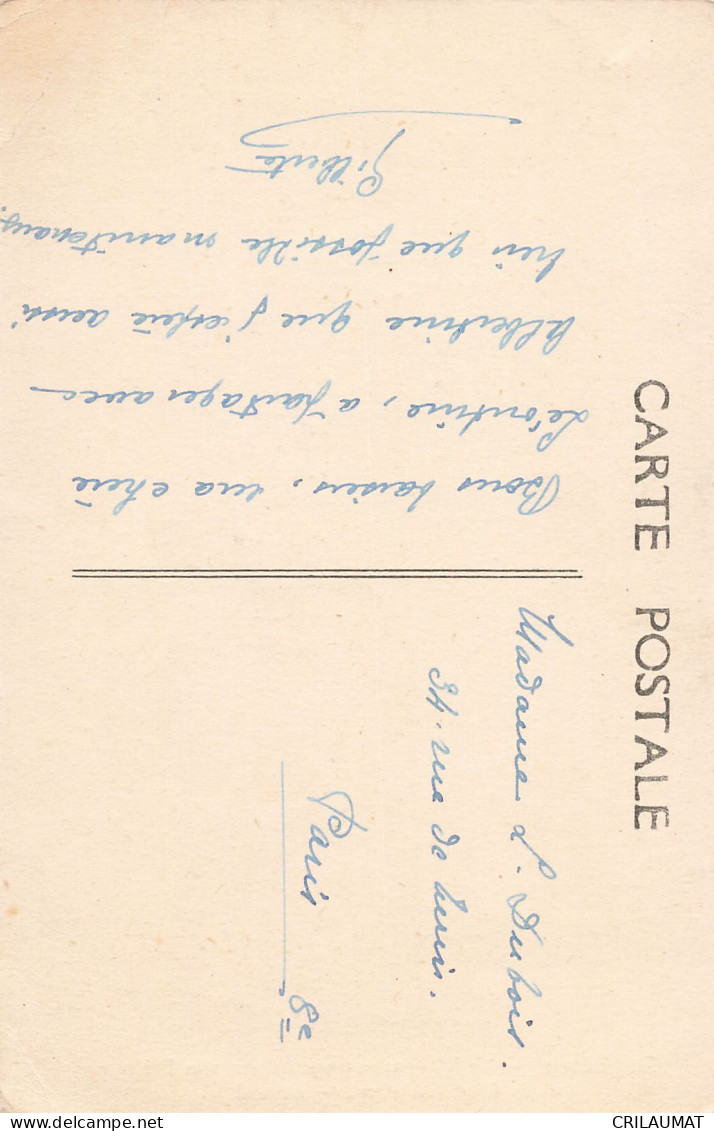 CARTE POSTALE
Bons baisers, ma chère
Léontine, à partager avec
Albertine que j'espère aussi
bien que possible maintenant.
Gilberte
Madame L. Dubois.
34. rue de Turin.
Paris 8e
CRILAUMAT